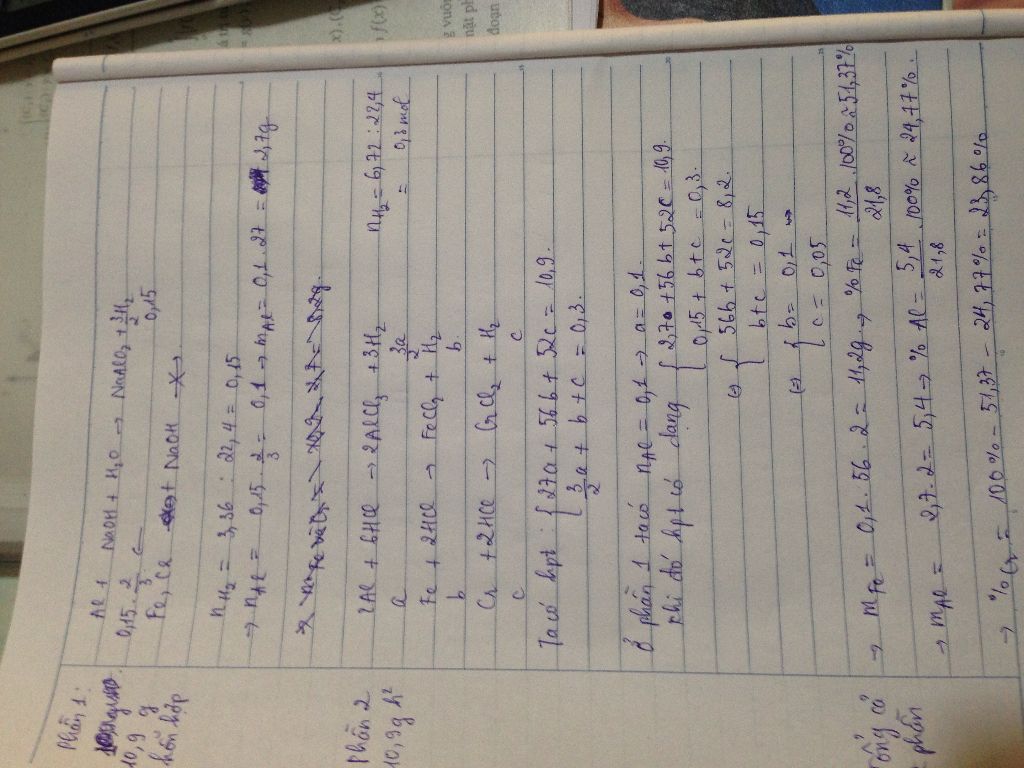 Phần 1:
10,9 g
hỗn hợp
Al + NaOH + H₂O → NaAlO₂ + 3/2 H₂
0,15 · 2/3 0,15
Fe, Cr + NaOH ─X→
nH₂ = 3,36 : 22,4 = 0,15
→ nAl = 0,15 · 2/3 = 0,1 → mAl = 0,1 · 27 = 2,7g
Phần 2
10,9g h²
2Al + 6HCl → 2AlCl₃ + 3H₂ nH₂ = 6,72 : 22,4
a 3a/2 = 0,3 mol
Fe + 2HCl → FeCl₂ + H₂
b b
Cr + 2HCl → CrCl₂ + H₂
c c
Ta có hpt : { 27a + 56b + 52c = 10,9.
3/2 a + b + c = 0,3.
Ở phần 1 ta có nAl = 0,1 → a = 0,1.
khi đó hpt có dạng { 27a + 56b + 52c = 10,9.
0,15 + b + c = 0,3.
(=) { 56b + 52c = 8,2.
b + c = 0,15
(=) { b = 0,1
c = 0,05
Tổng cả
2 phần
→ mFe = 0,1 · 56 · 2 = 11,2g → % Fe = 11,2/21,8 · 100% ≈ 51,37%
→ mAl = 2,7 · 2 = 5,4 → % Al = 5,4/21,8 · 100% ≈ 24,77%.
→ % Cr = 100% - 51,37 - 24,77% = 23,86%